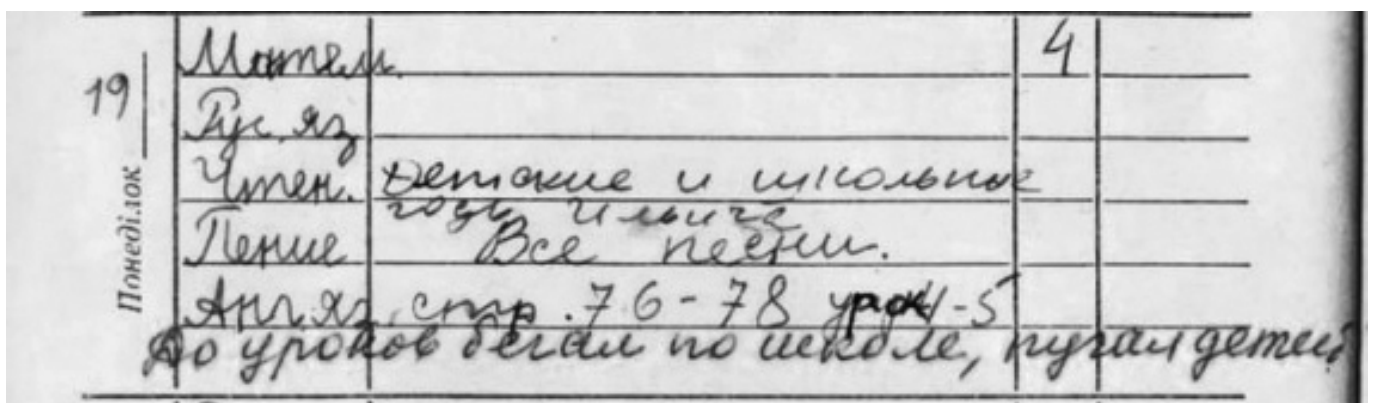 19
Понеділок
Матем. 4
Рус. яз
Чтен. Детские и школьные
годы Ильича
Пение Все песни.
Англ яз. стр. 76-78 урок 4-5
До уроков бегал по школе, пугал детей